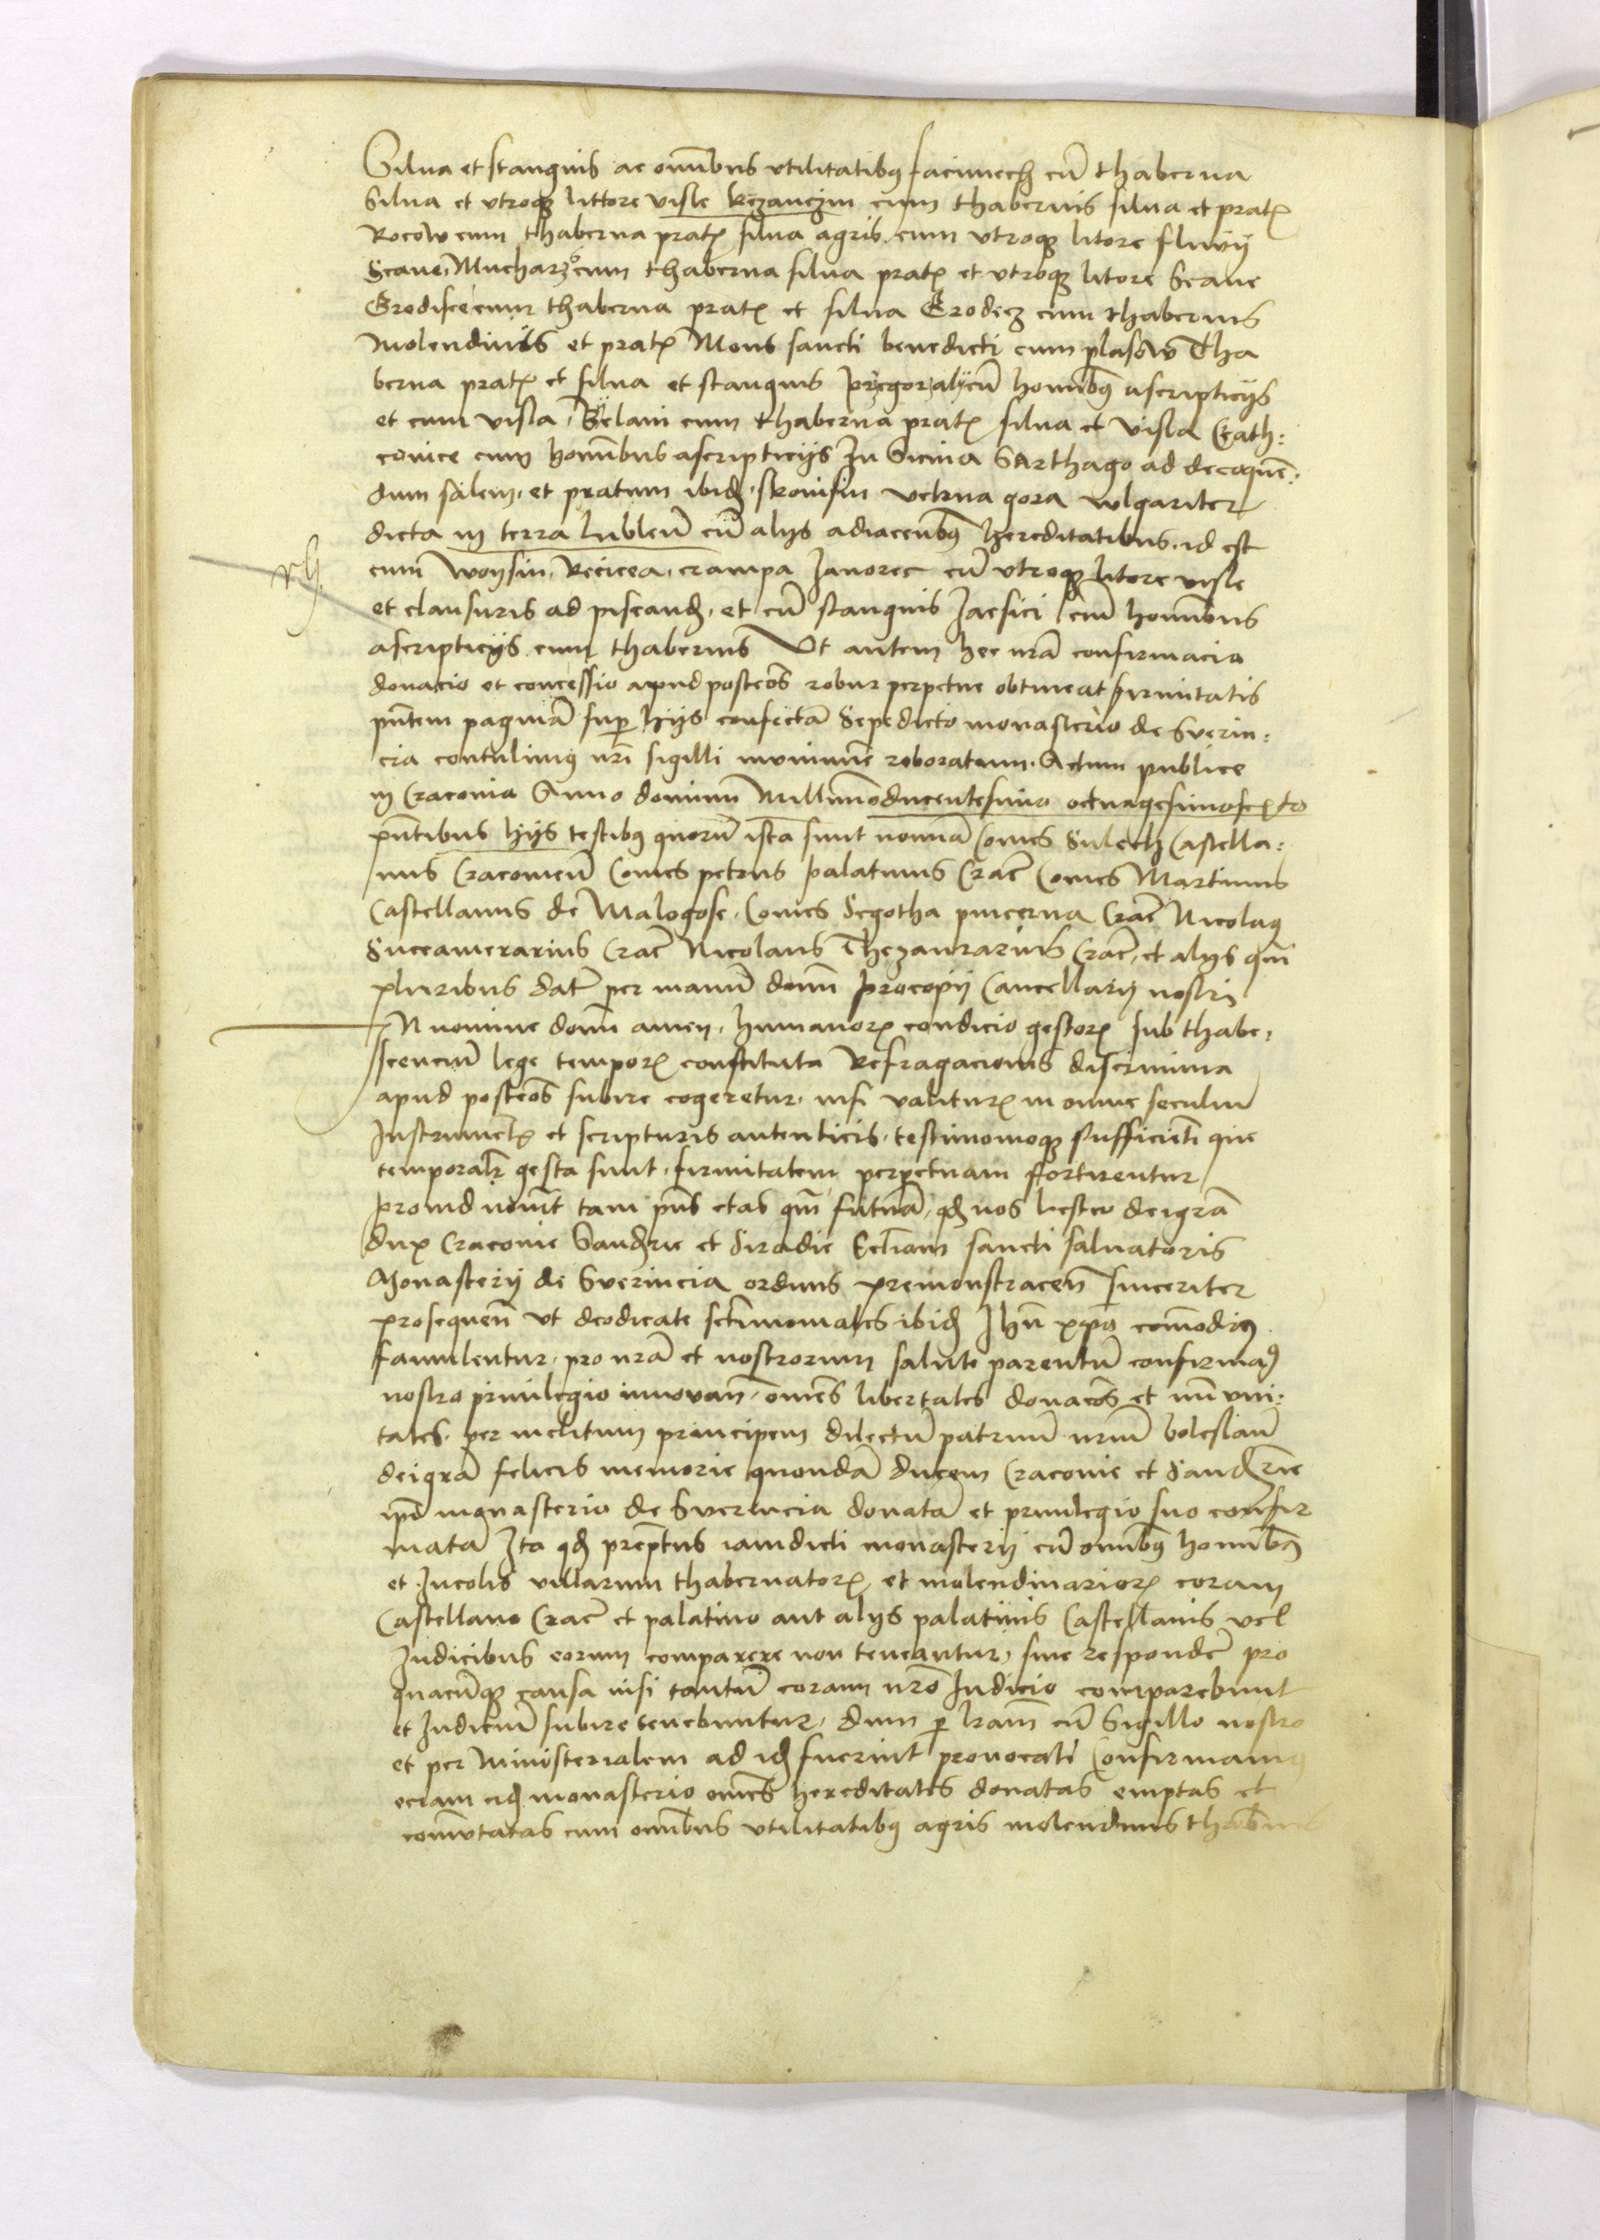 Silua et stangnis ac omībus vtilitatibꝰ facimech cū thaberna
Silua et vtroqꝫ littore visle kczanczin cum thabernis silua et pratꝭ
Rocow cum thaberna pratꝭ silua agris cum vtroqꝫ litore fluvij
Scaue, Mucharz cum thaberna silua pratꝭ et vtroqꝫ litore Scaue
Grodisce cum thaberna pratꝭ et silua Grodecz cum thabernis
Molendinis et pratꝭ Mons sancti benedicti cum plasow Tha
berna pratꝭ et silua et stangnis przegorzaly cū hominibꝰ ascripticijs
et cum visla, Bÿelani cum thaberna pratꝭ silua et visla Cath:
comice cum homībus ascripticijs In Sicina Sarthago ad decoquen:
dum salem, et pratum ibidē, skouisin vetrna gora wlgariter
dicta in terra lublenꝭ cū alijs adiacentibꝰ hereditatibus, id est
cum Woysin, Recicea, crampa Janorec cū vtroqꝫ litore visle
et clausuris ad piscandꝭ, et cū stangnis Jacsici cum homībus
ascripticijs cum thabernis Vt autem hec nr̄a confirmacio
donacio et concessio apud posteros robur perpetue obtineat firmitatis
pn̄tem paginā sup hijs confectā Sepedicto monasterio de Sverin:
cia contulimꝰ nr̄i sigilli munimīe roboratam. Actum publice
in Cracouia Anno domini Millimoducentesimo octuagesimosexto
pn̄tibus hijs testibꝰ quorū ista sunt nomīa Comes Sulech Castella:
nus Cracouien̄ Comes petrus palatinus Crac̄ Comes Martinus
Castellanus de Malogosc. Comes Segotha pincerna Crac̄ Nicolaꝰ
Succamerarius Crac̄ Nicolaus Thezaurarius Crac̄, et alijs qm̄
pluribus dat̄ per manū domī procopij Cancellarij nostri
IN nomine domī amen, humanorꝭ condicio gestorꝭ sub thabe:
scenciū lege temporꝭ constituta Refragacionis discrimina
apud posteros subire cogeretur, nisi valiturꝭ in omne seculum
Instrumētꝭ et scripturis autenticis, testimonioqꝫ sufficiēti que
temporalr̄ gesta sunt, firmitatem perpetuam sortirentur
proind nouīt tam pn̄s etas qm̄ futura, qd nos lestco dei grā
dux Cracouie Sandrīe et Siradie Eccl̄iam sancti saluatoris
Monasterij de Sverincia ordinis premonstracen̄ sinceriter
prosequen̄ vt deodicate sctīmoniales ibidē Ihū xpo comodiꝰ
famulentur, pro nr̄a et nostrorum salute parentū confirmadꝭ
nostro priuilegio innouan̄, omēs libertates donacōes et imūni:
tates, per inclitum principem dilectū patruū nr̄m boleslaū
dei grā felicis memorie quondā ducem Cracouie et Sandrīe
ipsi monasterio de Sverincia donatā et priuilegio suo confir
matā Ita qd prep̄tus iamdicti monasterij cū omībꝰ homībꝰ
et Incolis villarum thabernatorꝭ, et molendinariorꝭ coram
Castellano Crac̄ et palatino aut alijs palatinis Castellanis vel
Iudicibus eorum comparere non teneantur, siue respondere pro
quacūqꝫ causa nisi tantū coram nr̄o Iudicio comparebunt
et Iudiciū subire tenebuntur, dum p lr̄am cū Sigillo nostro
et per Ministerialem ad id fuerint prouocati Confirmamꝰ
eciam eidē monasterio omēs hereditates donatas emptas et
comutatas cum omībus vtilitatibꝰ agris molendinis thabernis